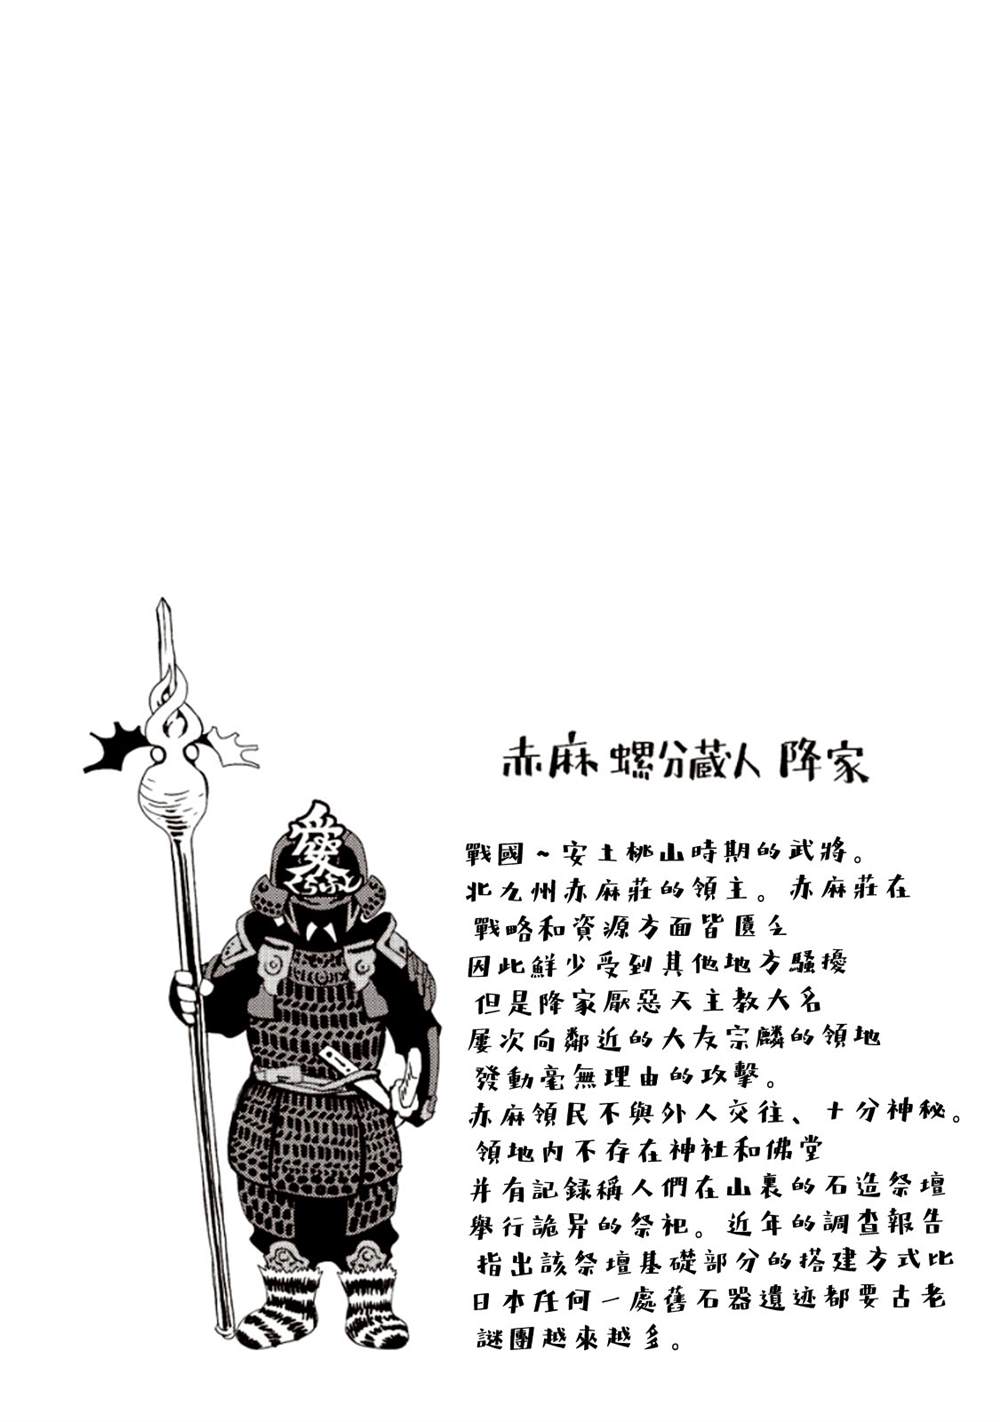 赤麻 螺分蔵人 降家
愛
くらふと
戰國～安土桃山時期的武將。
北九州赤麻莊的領主。赤麻莊在
戰略和資源方面皆匱乏
因此鮮少受到其他地方騷擾
但是降家厭惡天主教大名
屢次向鄰近的大友宗麟的領地
發動毫無理由的攻擊。
赤麻領民不與外人交往、十分神秘。
領地內不存在神社和佛堂
并有記録稱人們在山裏的石造祭壇
舉行詭异的祭祀。近年的調查報告
指出該祭壇基礎部分的搭建方式比
日本任何一處舊石器遺迹都要古老
謎團越來越多。